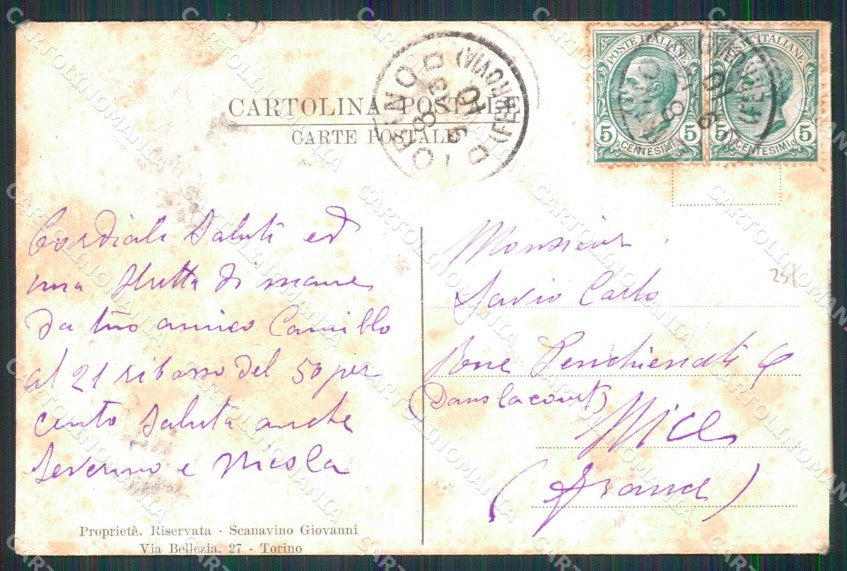 CARTOLINA POSTALE
CARTE POSTALE
TORINO
(FERROVIA)
POSTE ITALIANE
5 CENTESIMI 5
POSTE ITALIANE
5 CENTESIMI 5
Cordiali Saluti ed
una stretta di mano
da tuo amico Camillo
al 21 ribasso del 50 per
cento Saluta anche
Severino e Nicola
Monsieur
Savio Carlo
Rue Penchienati 9
(Dans la court)
Nice
(France)
25X
Proprietà. Riservata - Scanavino Giovanni
Via Bellezia. 27 - Torino
CARTOLINOMANIA